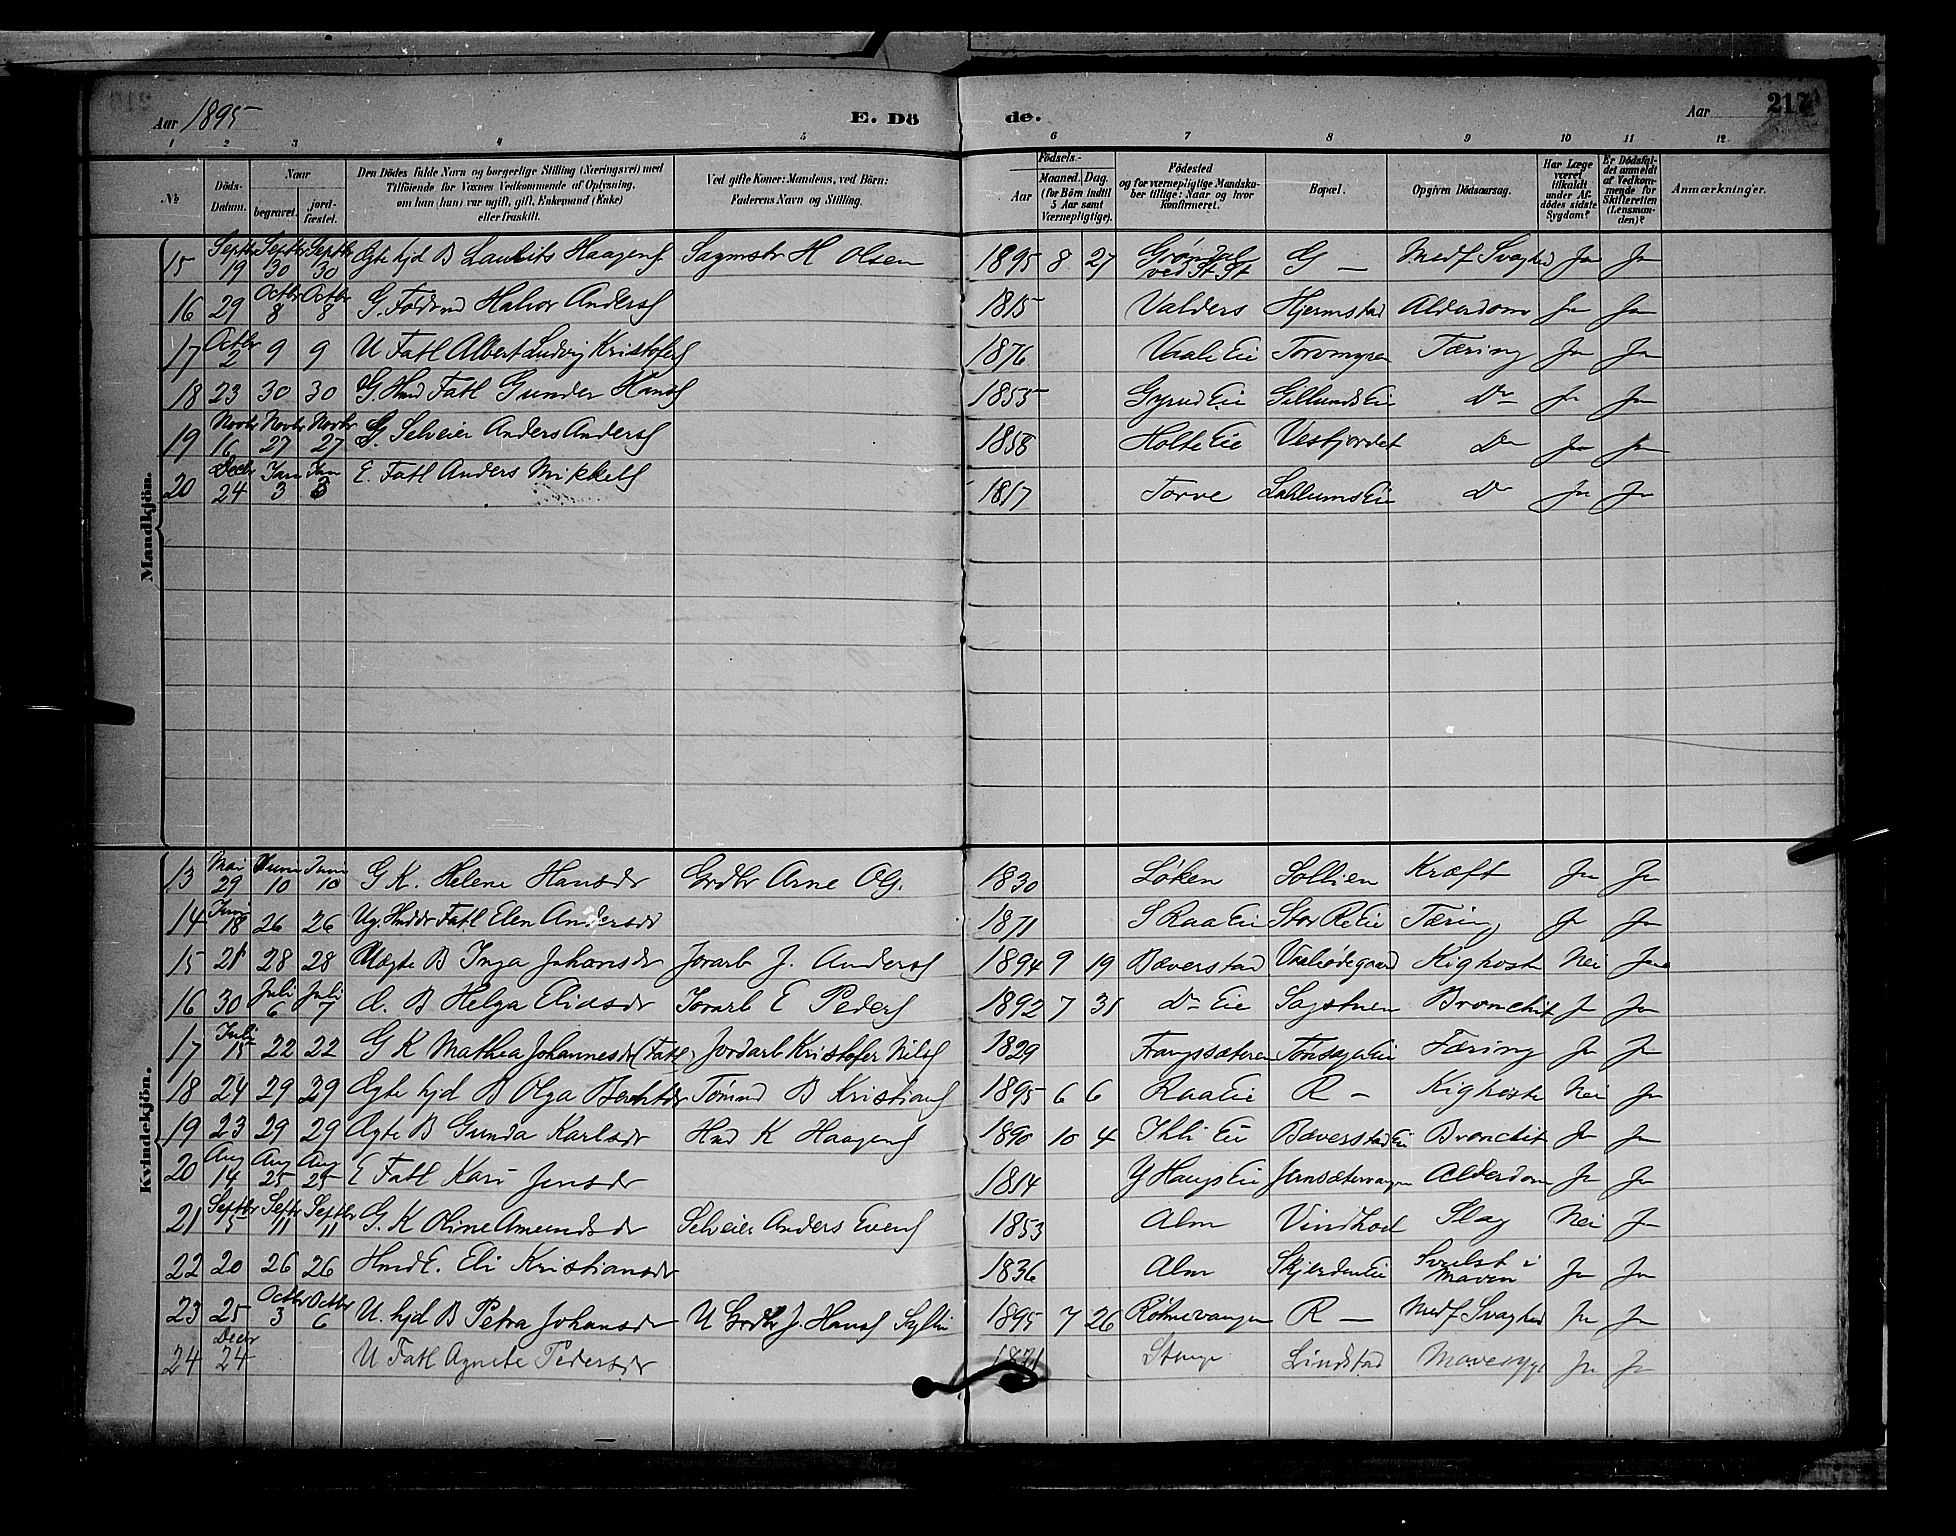 Aar 1895 E. Dö de. Aar 217
1 2 3 4 5 6 7 8 9 10 11 12
No. Döds-Datum. Naar begravet. jord-fæstet. Den Dödes fulde Navn og borgerlige Stilling (Næringsvei) med Tilföiende for Voxnes Vedkommende af Oplysning, om han (hun) var ugift, gift, Enkemand (Enke) eller fraskilt. Ved gifte Koner: Mandens, ved Börn: Faderens Navn og Stilling. Födsels- Aar Maaned. Dag. (for Börn indtil 5 Aar samt Værnepligtige). Födested og for værnepligtige Mandskaber tillige: Naar og hvor Konfirmeret. Bopæl. Opgiven Dödsaarsag. Har Læge været tilkaldt under Afdödes sidste Sygdom? Er Dödsfaldet anmeldt af Vedkommende for Skifteretten (Lensmanden)? Anmærkninger.
Mandkjön.
15 Septbr 19 Septbr 30 Septbr 30 Ægte hjd B Laurits Haagens Sagmstr H Olsen 1895 8 27 Grøndal ved St St G — Medf Svaghed Ja Ja
16 29 Octbr 8 Octbr 8 G. Födrnd Halvor Anders 1815 Valders Hjermstad Alderdom Ja Ja
17 Octbr 2 9 9 U Fatl Albert Ludvig Kristofers 1876 Vaali Eie Torvmyren Tæring Ja Ja
18 23 30 30 G. Hmd Fatl Gunder Hans 1855 Gyrud Eie Gillunds Eie Do Ja Ja
19 Novbr 16 Novbr 27 Novbr 27 G. Selveier Anders Anders 1858 Holte Eie Vesfjordet Do Ja Ja
20 Decbr 24 Jan 3 Jan 3 E. Fatl Anders Mikkels 1817 Torve Lablums Eie Do Ja Ja
Kvindekjön.
13 Mai 29 Juni 10 Juni 10 G K. Helene Hansdr Grdbr Arne Ols. 1830 Løken Sollien Kræft Ja Ja
14 Juni 18 26 26 Ug. Hmddr Fatl Elen Andersdr 1871 S Raa Eie Stor Re Eie Tæring Ja Ja
15 21 28 28 Uægte B Inga Johansdr Jorarb J. Anders 1894 9 19 Bæverstad Vaaliødegaard Kighoste Nei Ja
16 30 Juli 6 Juli 7 Æ. B Helga Eliasdr Jorarb E Peders 1892 7 31 Do Eie Sagstuen Bronchit Ja Ja
17 Juli 15 22 22 G K Mathea Johannesdr (Fatl) Jordarb Kristofer Nils 1829 Frangssæteren Tønsager Eie Tæring Ja Ja
18 24 29 29 Ægte hjd B Olga Berntdr Tømmd B Kristians 1895 6 6 Raa Eie R — Kighoste Nei Ja
19 23 29 29 Ægte B Gunda Karlsdr Hmd K Haagens 1890 10 4 Ihli Eie Bæverstad Eie Bronchit Ja Ja
20 Aug 14 Aug 25 Aug 25 E Fatl Kari Jensdr 1814 Y Haugs Eie Jernsætervangen Alderdom Ja Ja
21 Septbr 5 Septbr 11 Septbr 11 G. K Oline Amundsdr Selveier Anders Evens 1853 Alm Vindhoel Slag Nei Ja
22 20 26 26 Hmd E. Eli Kristiansdr 1836 Alm Skjerden Eie Svulst i Maven Ja Ja
23 25 Octbr 3 Octbr 6 U. hjd B Petra Johansdr U Grdbr J. Hans 1895 7 26 Röhnevangen R — Medf Svaghed Ja Ja
24 Decbr 24 U Fatl Agnete Pedersdr 1871 Stange Lindstad Mavesyge Ja Ja